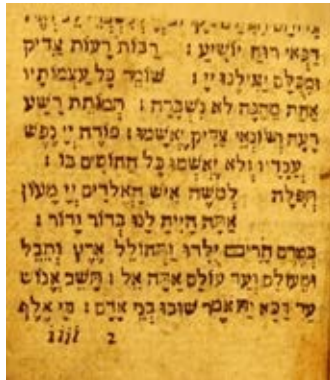 דַּכְּאֵי רוּחַ יוֹשִׁיעַ : רַבּוֹת רָעוֹת צַדִּיק
וּמִכֻּלָּם יַצִּילֶנּוּ יְיָ : שׁוֹמֵר כָּל עַצְמוֹתָיו
אַחַת מֵהֵנָּה לֹא נִשְׁבָּרָה : תְּמוֹתֵת רָשָׁע
רָעָה וְשׂוֹנְאֵי צַדִּיק יֶאְשָׁמוּ : פּוֹדֶה יְיָ נֶפֶשׁ
עֲבָדָיו וְלֹא יֶאְשְׁמוּ כָּל הַחוֹסִים בּוֹ :
תְּפִלָּה לְמֹשֶׁה אִישׁ הָאֱלֹדִים יְיָ מָעוֹן
אַתָּה הָיִיתָ לָּנוּ בְּדוֹר וָדוֹר :
בְּטֶרֶם הָרִים יֻלָּדוּ וַתְּחוֹלֵל אֶרֶץ וְתֵבֵל
וּמֵעוֹלָם וְעַד עוֹלָם אַתָּה אֵל : תָּשֵׁב אֱנוֹשׁ
עַד דַּכָּא וַתֹּאמֶר שׁוּבוּ בְנֵי אָדָם : כִּי אֶלֶף
iiji 2